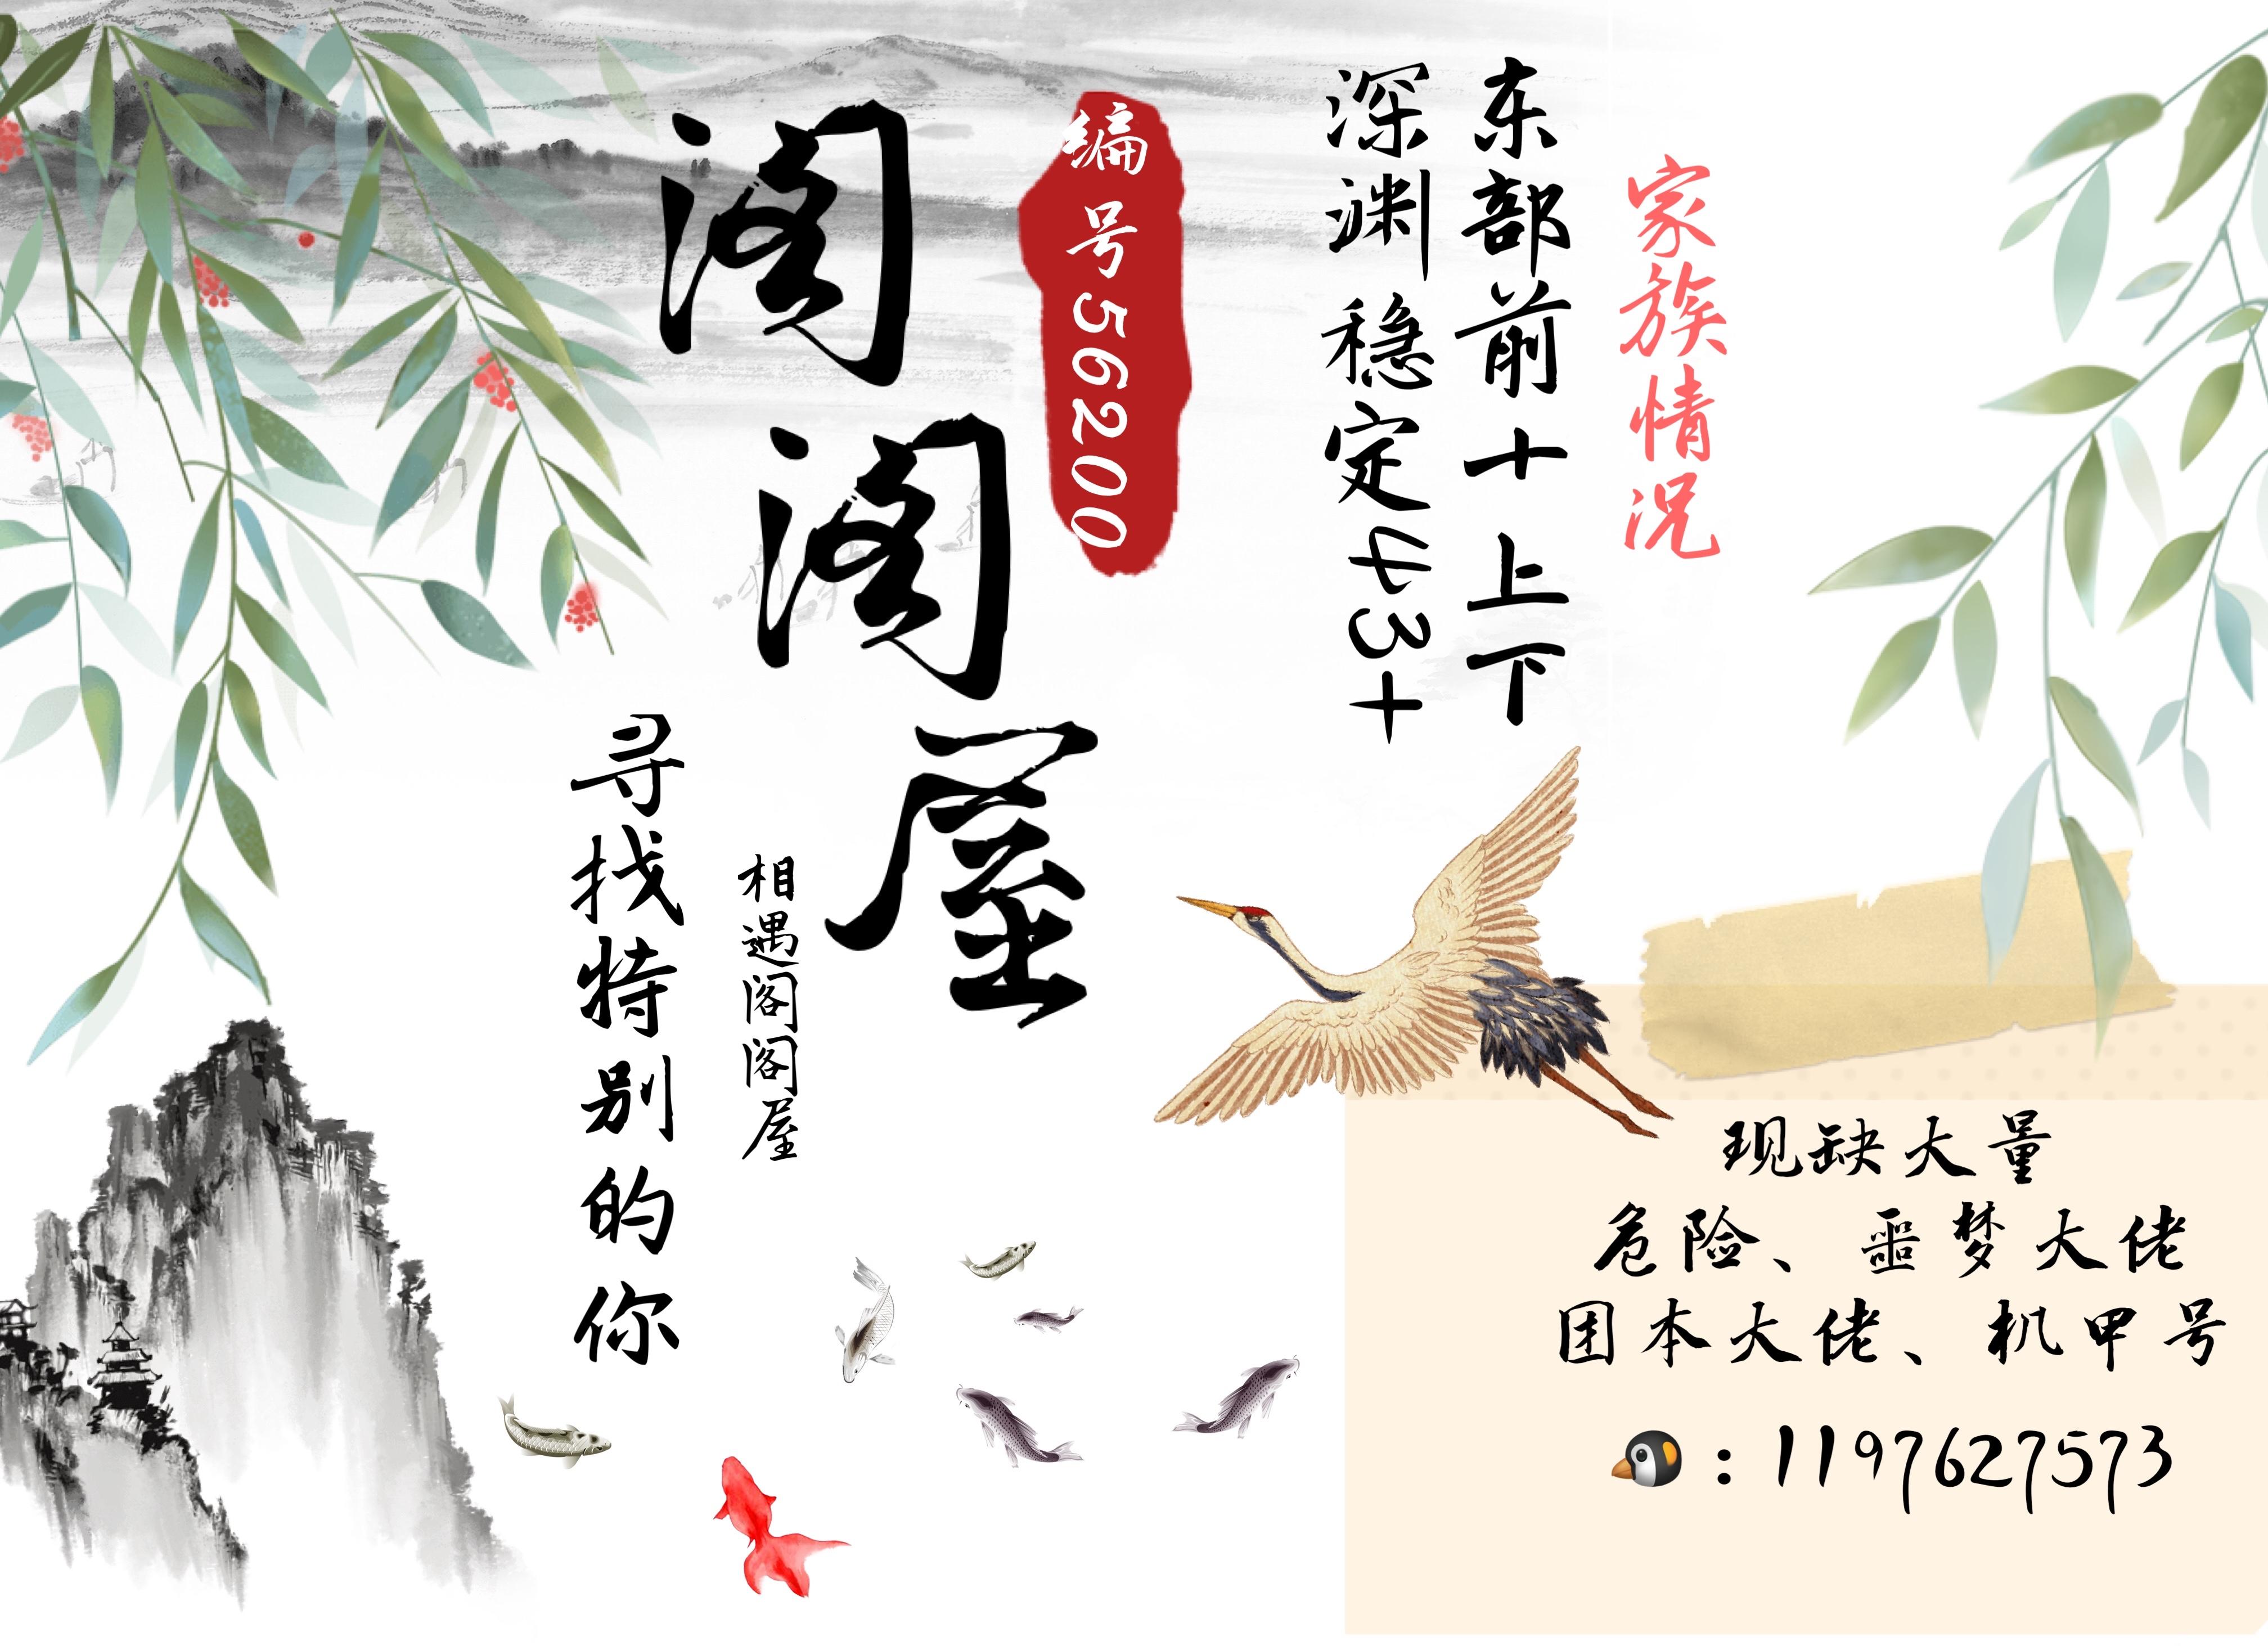 家族情况
东部前十上下
深渊稳定443+
编号56200
阁阁屋
相遇阁阁屋
寻找特别的你
现缺大量
危险、噩梦大佬
团本大佬、机甲号
：1197627573